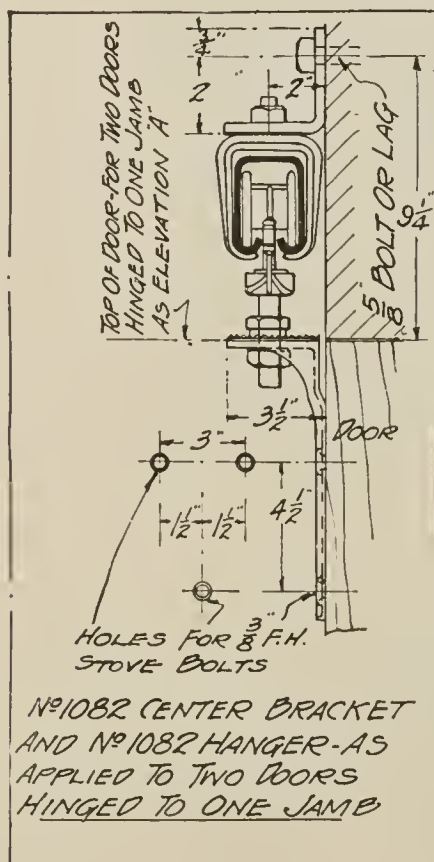 3/4"
2
2"
TOP OF DOOR-FOR TWO DOORS
HINGED TO ONE JAMB
AS ELEVATION "A"
5/8 BOLT OR LAG
9 1/4"
3 1/2"
DOOR
3"
4 1/2"
1 1/2" 1 1/2"
HOLES FOR 3/8" F.H.
STOVE BOLTS
Nº 1082 CENTER BRACKET
AND Nº 1082 HANGER-AS
APPLIED TO TWO DOORS
HINGED TO ONE JAMB